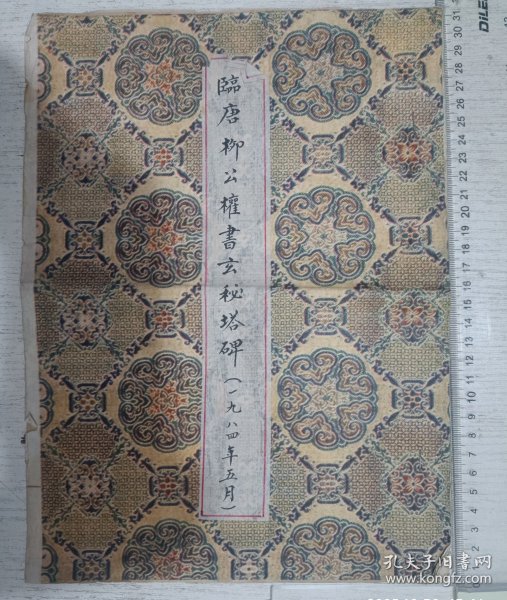 臨唐柳公權書玄秘塔碑(一九八四年五月)
DiLE
31
30
29
28
27
26
25
24
23
22
21
20
19
18
17
16
15
14
13
12
11
10
9
8
7
6
5
4
3
2
孔夫子旧书网
www.kongfz.com